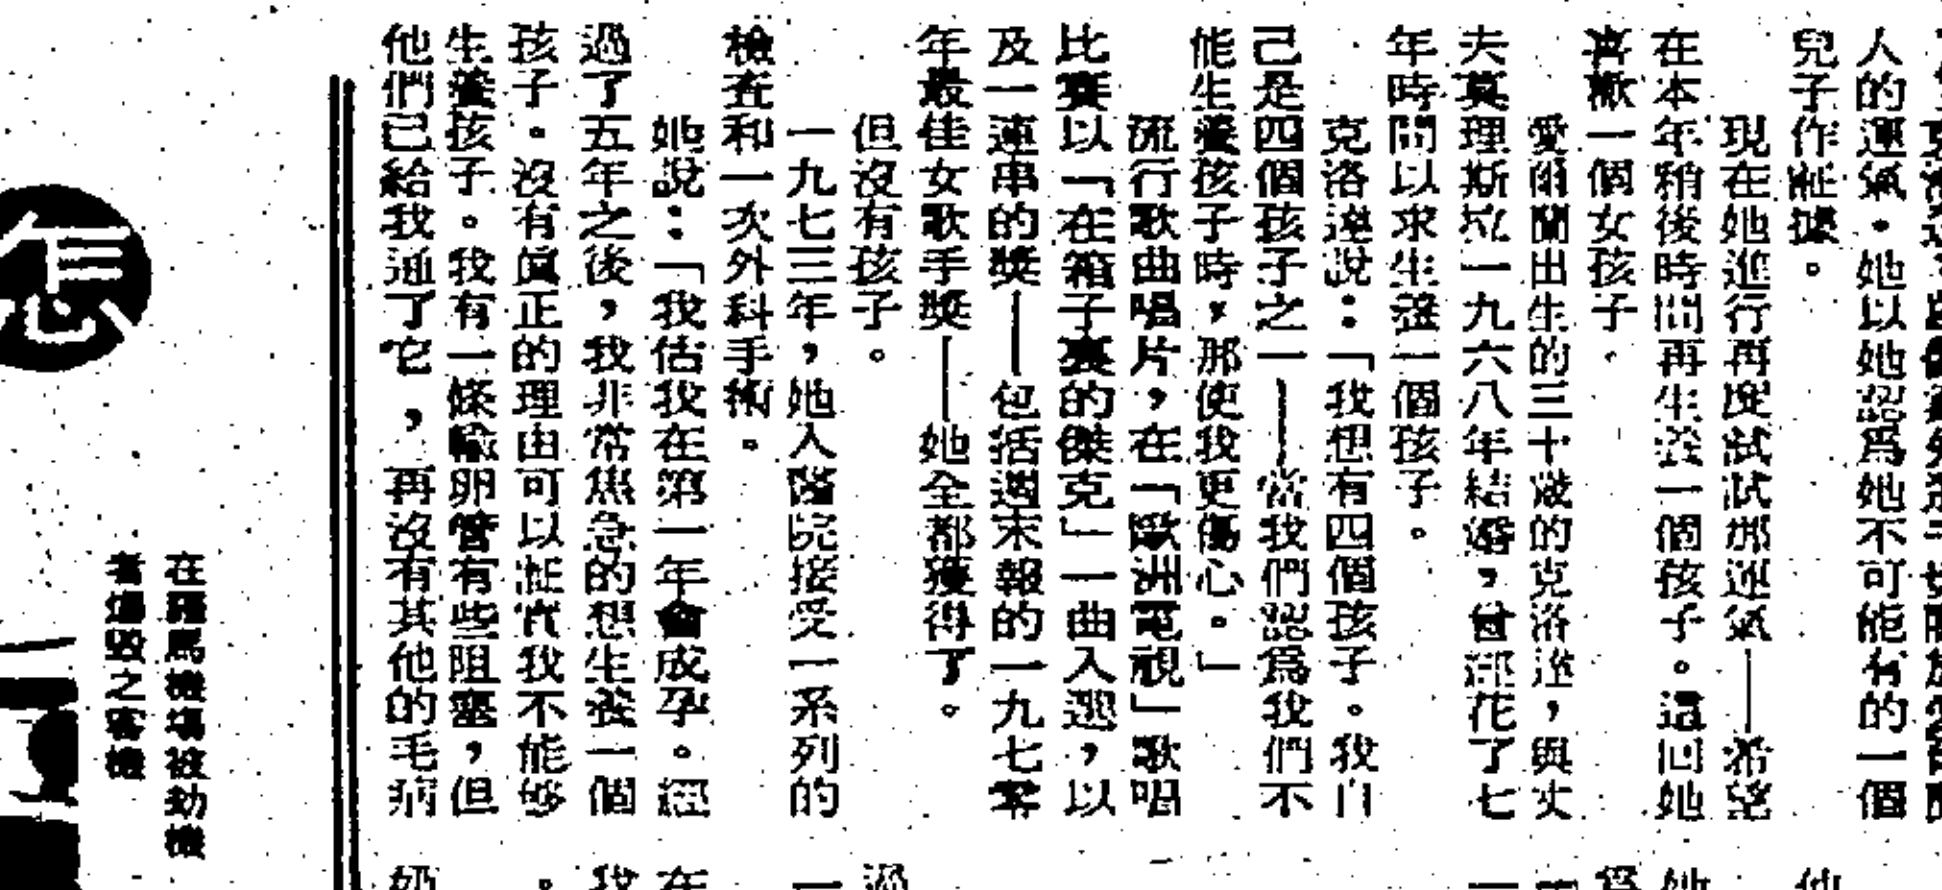 人的運氣。她以她認爲她不可能有的一個
兒子作証據。
現在她進行再度試試那運氣——希望
在本年稍後時間再生養一個孩子。這回她
喜歡一個女孩子。
愛爾蘭出生的三十歲的克洛達，與丈
夫莫理斯於一九六八年結婚，曾經花了七
年時間以求生養一個孩子。
克洛達說：「我想有四個孩子。我自
己是四個孩子之一——當我們認爲我們不
能生養孩子時，那使我更傷心。」
流行歌曲唱片，在「歐洲電視」歌唱
比賽以「在箱子裏的傑克」一曲入選，以
及一連串的獎——包括週末報的一九七零
年最佳女歌手獎——她全都獲得了。
但沒有孩子。
一九七三年，她入醫院接受一系列的
檢查和一次外科手術。
她說：「我估我在第一年會成孕。經
過了五年之後，我非常焦急的想生養一個
孩子。沒有眞正的理由可以証實我不能够
生養孩子。我有一條輸卵管有些阻塞，但
他們已給我通了它，再沒有其他的毛病
怎
在羅馬機塲被劫機
者燬之客機